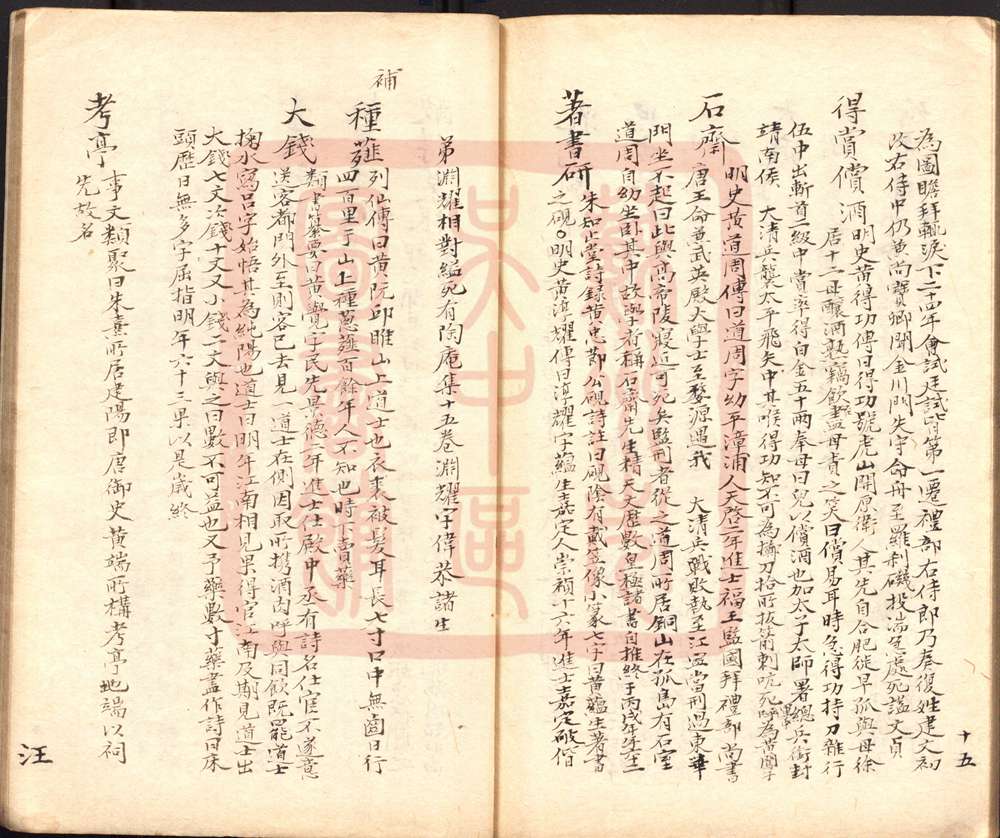 為圖瞻拜輙淚下二十四年會試廷試皆第一遷禮部右侍郎乃奏復姓建文初
改右侍中仍兼尚寶卿聞金川門失守命舟至羅刹磯投湍急處死諡文貞
得賞償酒 明史黄得功傳曰得功號虎山開原衛人其先自合肥徙早孤與母徐
居十二母釀酒熟竊飲盡母責之笑曰償易耳時急得功持刀雜行
伍中出斬首二級中賞率得白金五十兩奉母曰兒以償酒也加太子太師署總兵銜封
靖南侯 大清兵襲太平飛矢中其喉得功知不可為擲刀拾所拔箭刺吭死呼為黄闖子
石齋 明史黄道周傳曰道周字幼平漳浦人天啓二年進士福王監國拜禮部尚書
唐王命兼武英殿大學士至婺源遇我 大清兵戰敗執至江寧當刑過東華
門坐不起曰此與高帝陵寢近可死矣監刑者從之道周所居銅山在孤島有石室
道周自幼坐卧其中故學者稱石齋先生精天文歷數皇極諸書自推終于丙戌年
著書研 朱知止堂詩録黄忠節公硯詩註曰硯陰有戴笠像小篆七字曰黄蘊生著書
之硯○明史黄淳耀傳曰淳耀字蘊生嘉定人崇禎十六年進士嘉定破偕
弟淵耀相對縊死有陶庵集十五卷淵耀字偉恭諸生
補
種薤 列仙傳曰黄阮邱睢山上道士也衣裘被髮耳長七寸口中無齒日行
四百里于山上種蔥薤百餘年人不知也時下賣藥
大錢 類書纂要曰黄覺字民先景德二年進士仕殿中丞有詩名仕宦不遂意
送客都門外至則客已去見一道士在側因取所携酒肉呼與同飲既罷道士
掬水寫呂字始悟其為純陽也道士曰明年江南相見果得官江南及期見道士出
大錢七文次錢十文又小錢二文與之曰數不可益也又予藥數寸藥盡作詩曰床
頭歷日無多字屈指明年六十三果以是歲終
考亭 事文類聚曰朱熹所居建陽即唐御史黄端所構考亭地端以祠
先故名
汪
十五